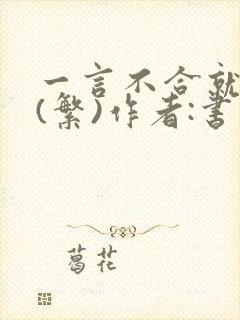 一言不合就
(繁)作者:書
葛花